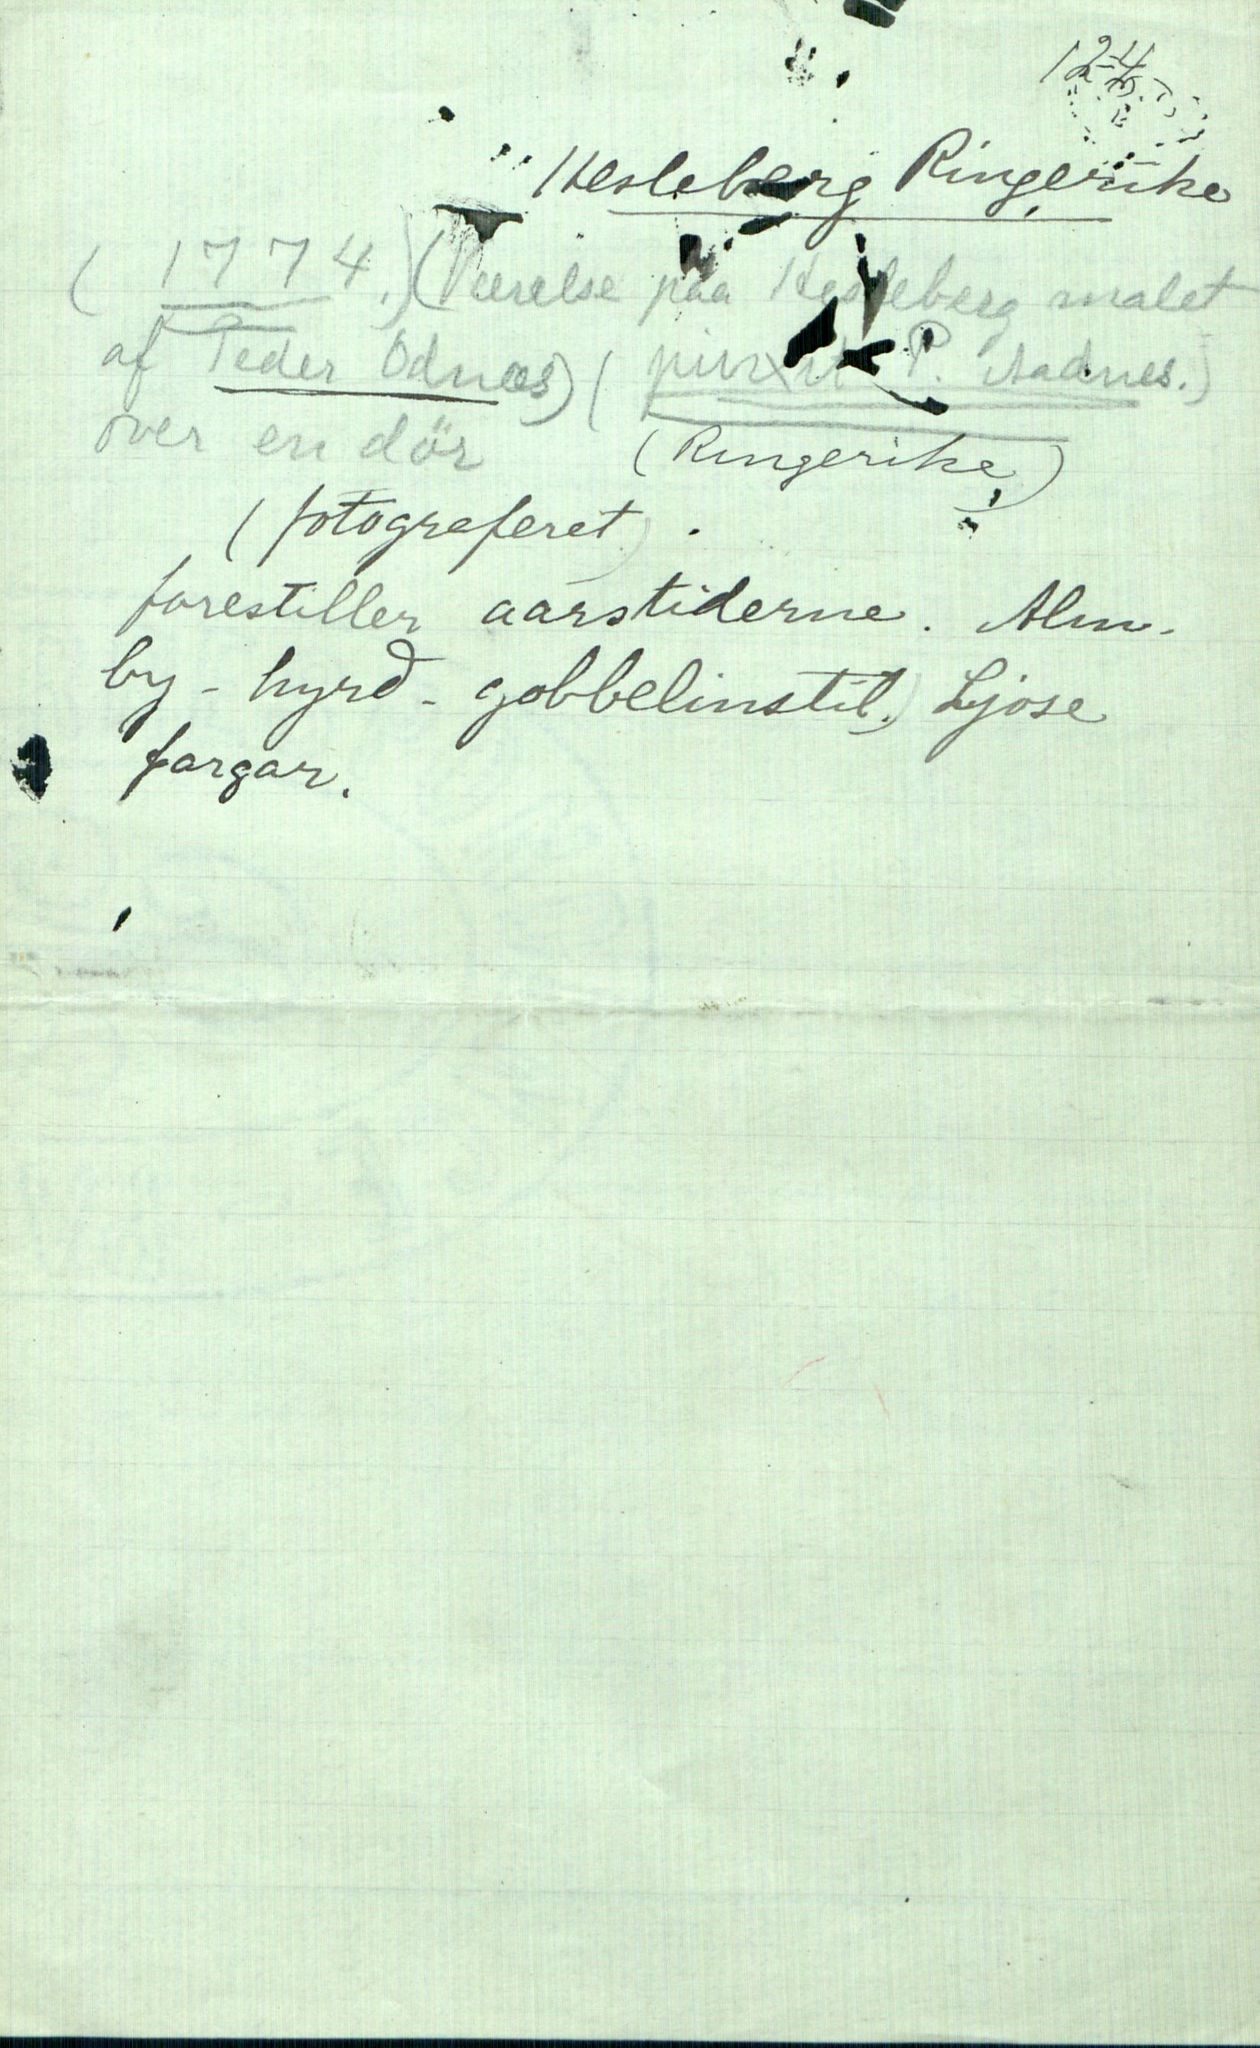 124
Hesleberg Ringerike
(1774.) (Værelse paa Hesleberg malet
af Peder Odnæs) (pinxit P. Aadnes.)
over en dör (Ringerike)
(fotograferet).
forestiller aarstiderne. Alm.
by - hyrd - gobbelinstil.) Ljose
fargar.